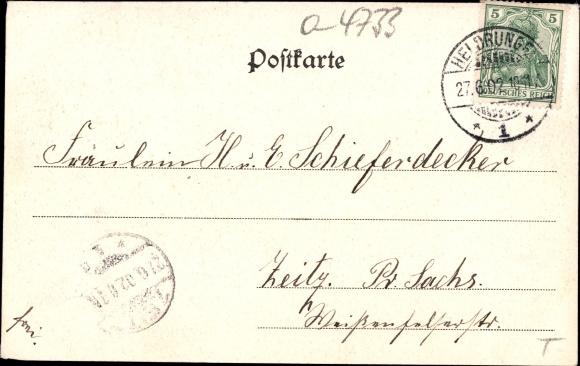 a-4733
Postkarte
5 5
DEUTSCHES REICH
HELDRUNGEN
27.6.02
* 1 *
Fräulein H u. E. Schieferdecker
Zeitz. Pr. Sachs.
Weißenfelserstr.
frei.
T